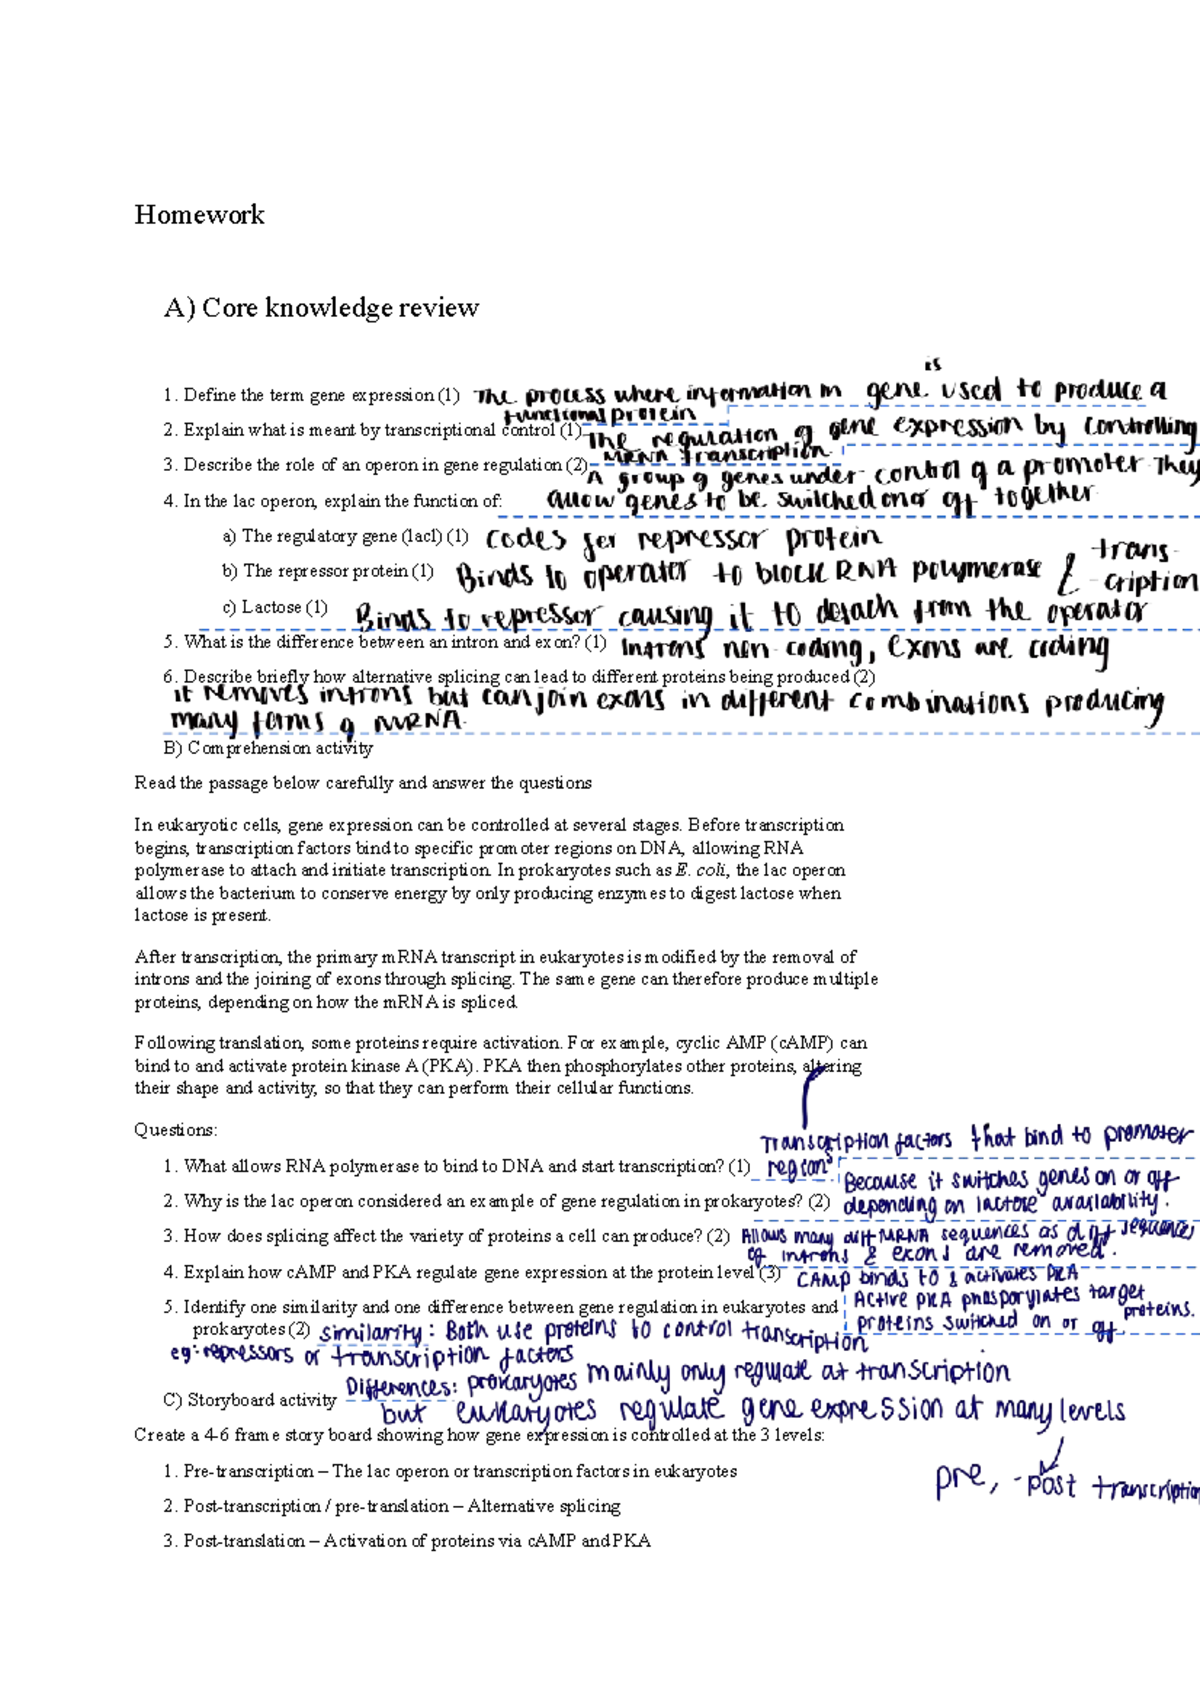 Homework
A) Core knowledge review
is
1. Define the term gene expression (1) The process where information in gene used to produce a
functional protein
2. Explain what is meant by transcriptional control (1) The regulation of gene expression by controlling
mRNA transcription.
3. Describe the role of an operon in gene regulation (2) A group of genes under control of a promoter They
4. In the lac operon, explain the function of: allow genes to be switched on or off together
a) The regulatory gene (lacI) (1) codes for repressor protein
b) The repressor protein (1) Binds to operator to block RNA polymerase & trans-
cription
c) Lactose (1) Binds to repressor causing it to detach from the operator
5. What is the difference between an intron and exon? (1) Introns non-coding, Exons are coding
6. Describe briefly how alternative splicing can lead to different proteins being produced (2)
it removes introns but can join exons in different combinations producing
many forms of mRNA.
B) Comprehension activity
Read the passage below carefully and answer the questions
In eukaryotic cells, gene expression can be controlled at several stages. Before transcription
begins, transcription factors bind to specific promoter regions on DNA, allowing RNA
polymerase to attach and initiate transcription. In prokaryotes such as E. coli, the lac operon
allows the bacterium to conserve energy by only producing enzymes to digest lactose when
lactose is present.
After transcription, the primary mRNA transcript in eukaryotes is modified by the removal of
introns and the joining of exons through splicing. The same gene can therefore produce multiple
proteins, depending on how the mRNA is spliced.
Following translation, some proteins require activation. For example, cyclic AMP (cAMP) can
bind to and activate protein kinase A (PKA). PKA then phosphorylates other proteins, altering
their shape and activity, so that they can perform their cellular functions.
Questions:
Transcription factors that bind to promoter
1. What allows RNA polymerase to bind to DNA and start transcription? (1) regions
Because it switches genes on or off
2. Why is the lac operon considered an example of gene regulation in prokaryotes? (2) depending on lactose availability.
3. How does splicing affect the variety of proteins a cell can produce? (2) Allows many diff mRNA sequences as diff sequences
of introns & exons are removed.
4. Explain how cAMP and PKA regulate gene expression at the protein level (3) CAMP binds to & activates PKA
Active PKA phosporylates target
proteins.
5. Identify one similarity and one difference between gene regulation in eukaryotes and proteins switched on or off
prokaryotes (2) similarity: Both use proteins to control transcription
eg: repressors or transcription factors
Differences: prokaryotes mainly only regulate at transcription
C) Storyboard activity but eukaryotes regulate gene expression at many levels
Create a 4-6 frame story board showing how gene expression is controlled at the 3 levels:
1. Pre-transcription – The lac operon or transcription factors in eukaryotes
pre, - post transcription
2. Post-transcription / pre-translation – Alternative splicing
3. Post-translation – Activation of proteins via cAMP and PKA